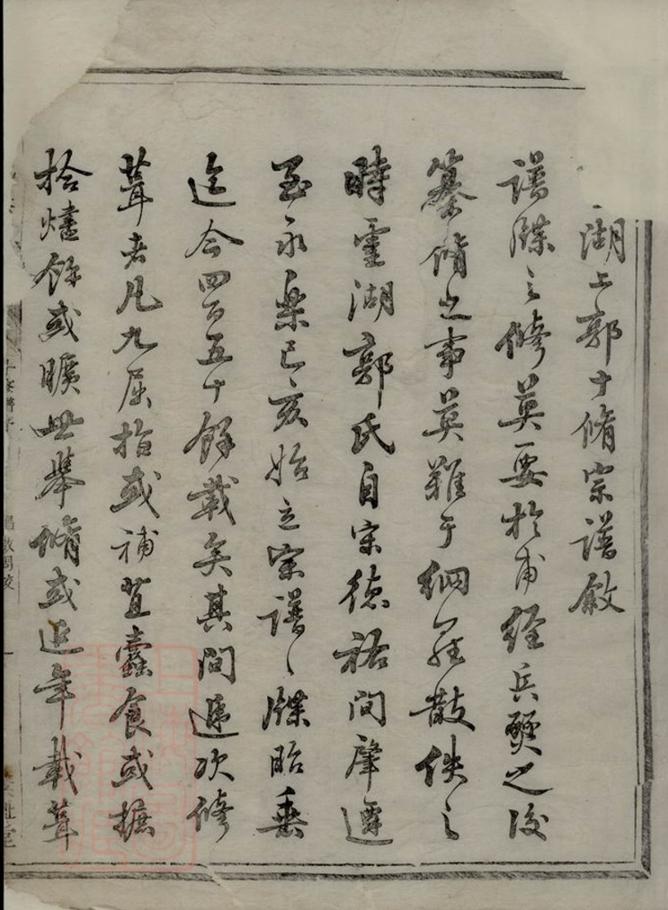 湖上郭十脩宗譜敘
譜牒之修莫要於甫經兵燹之後
纂脩之事莫難于網羅散佚之
時靈湖郭氏自宋德祐間肇遷
至永樂己亥始立宗譜〻牒昭垂
迄今四百五十餘載矣其間遞次修
葺者凡九屈指或補苴蠹食或摭
拾燼餘或曠世舉脩或近年載葺